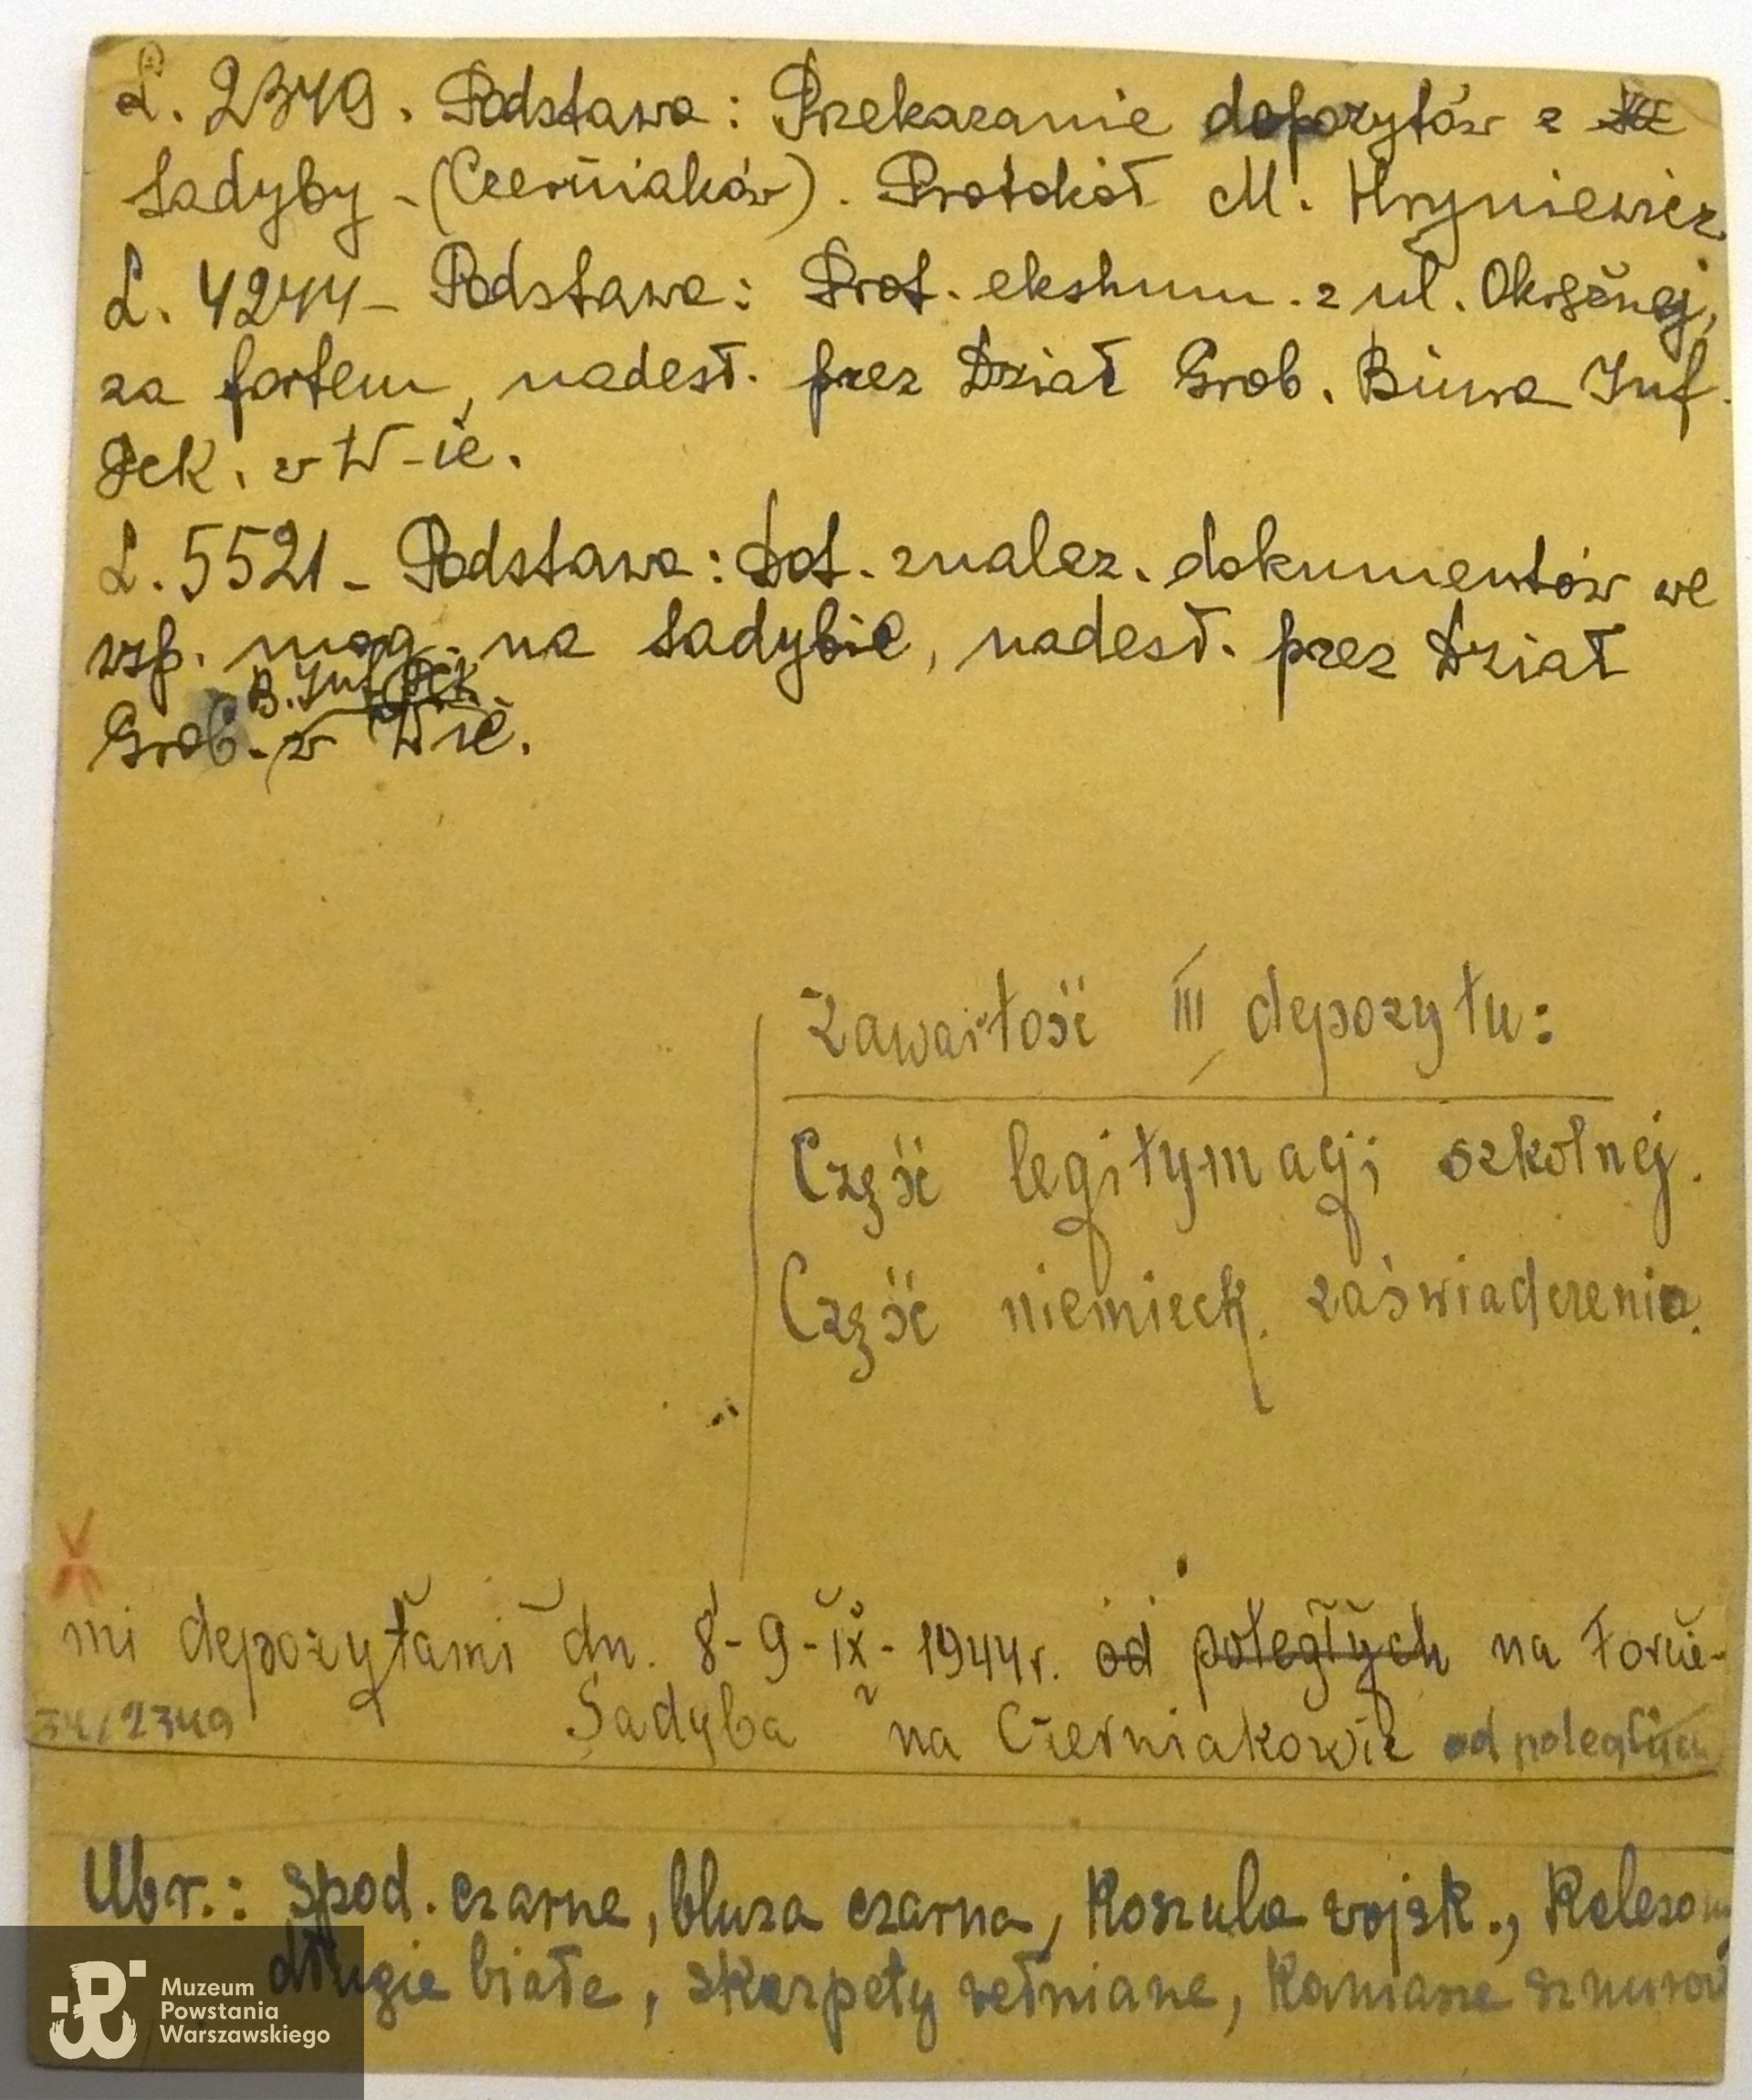 L. 2349. Podstawa: Przekazanie depozytów z
Sadyby - (Czerniaków). Protokół M. Hryniewicz
L. 4244 - Podstawa: Prot. ekshum. z ul. Okrężnej,
za fortem, nadesł. przez Dział Grob. Biura Inf.
PCK. w W-ie.
L. 5521 - Podstawa: Dot. znalez. dokumentów we
wsp. mog. na Sadybie, nadesł. przez Dział
B. Inf. PCK
Grob. w W-ie.
Zawartość III depozytu:
Część legitymacji szkolnej.
Część niemieck. zaświadczenia.
mi depozytami dn. 8-9-IX-1944r. od poległych na Forcie-
34/2349 Sadyba na Czerniakowie od poległych
Ubr.: spod. czarne, bluza czarna, koszula wojsk., kaleson
długie białe, skarpety wełniane, kamasze sznurow
Muzeum
Powstania
Warszawskiego